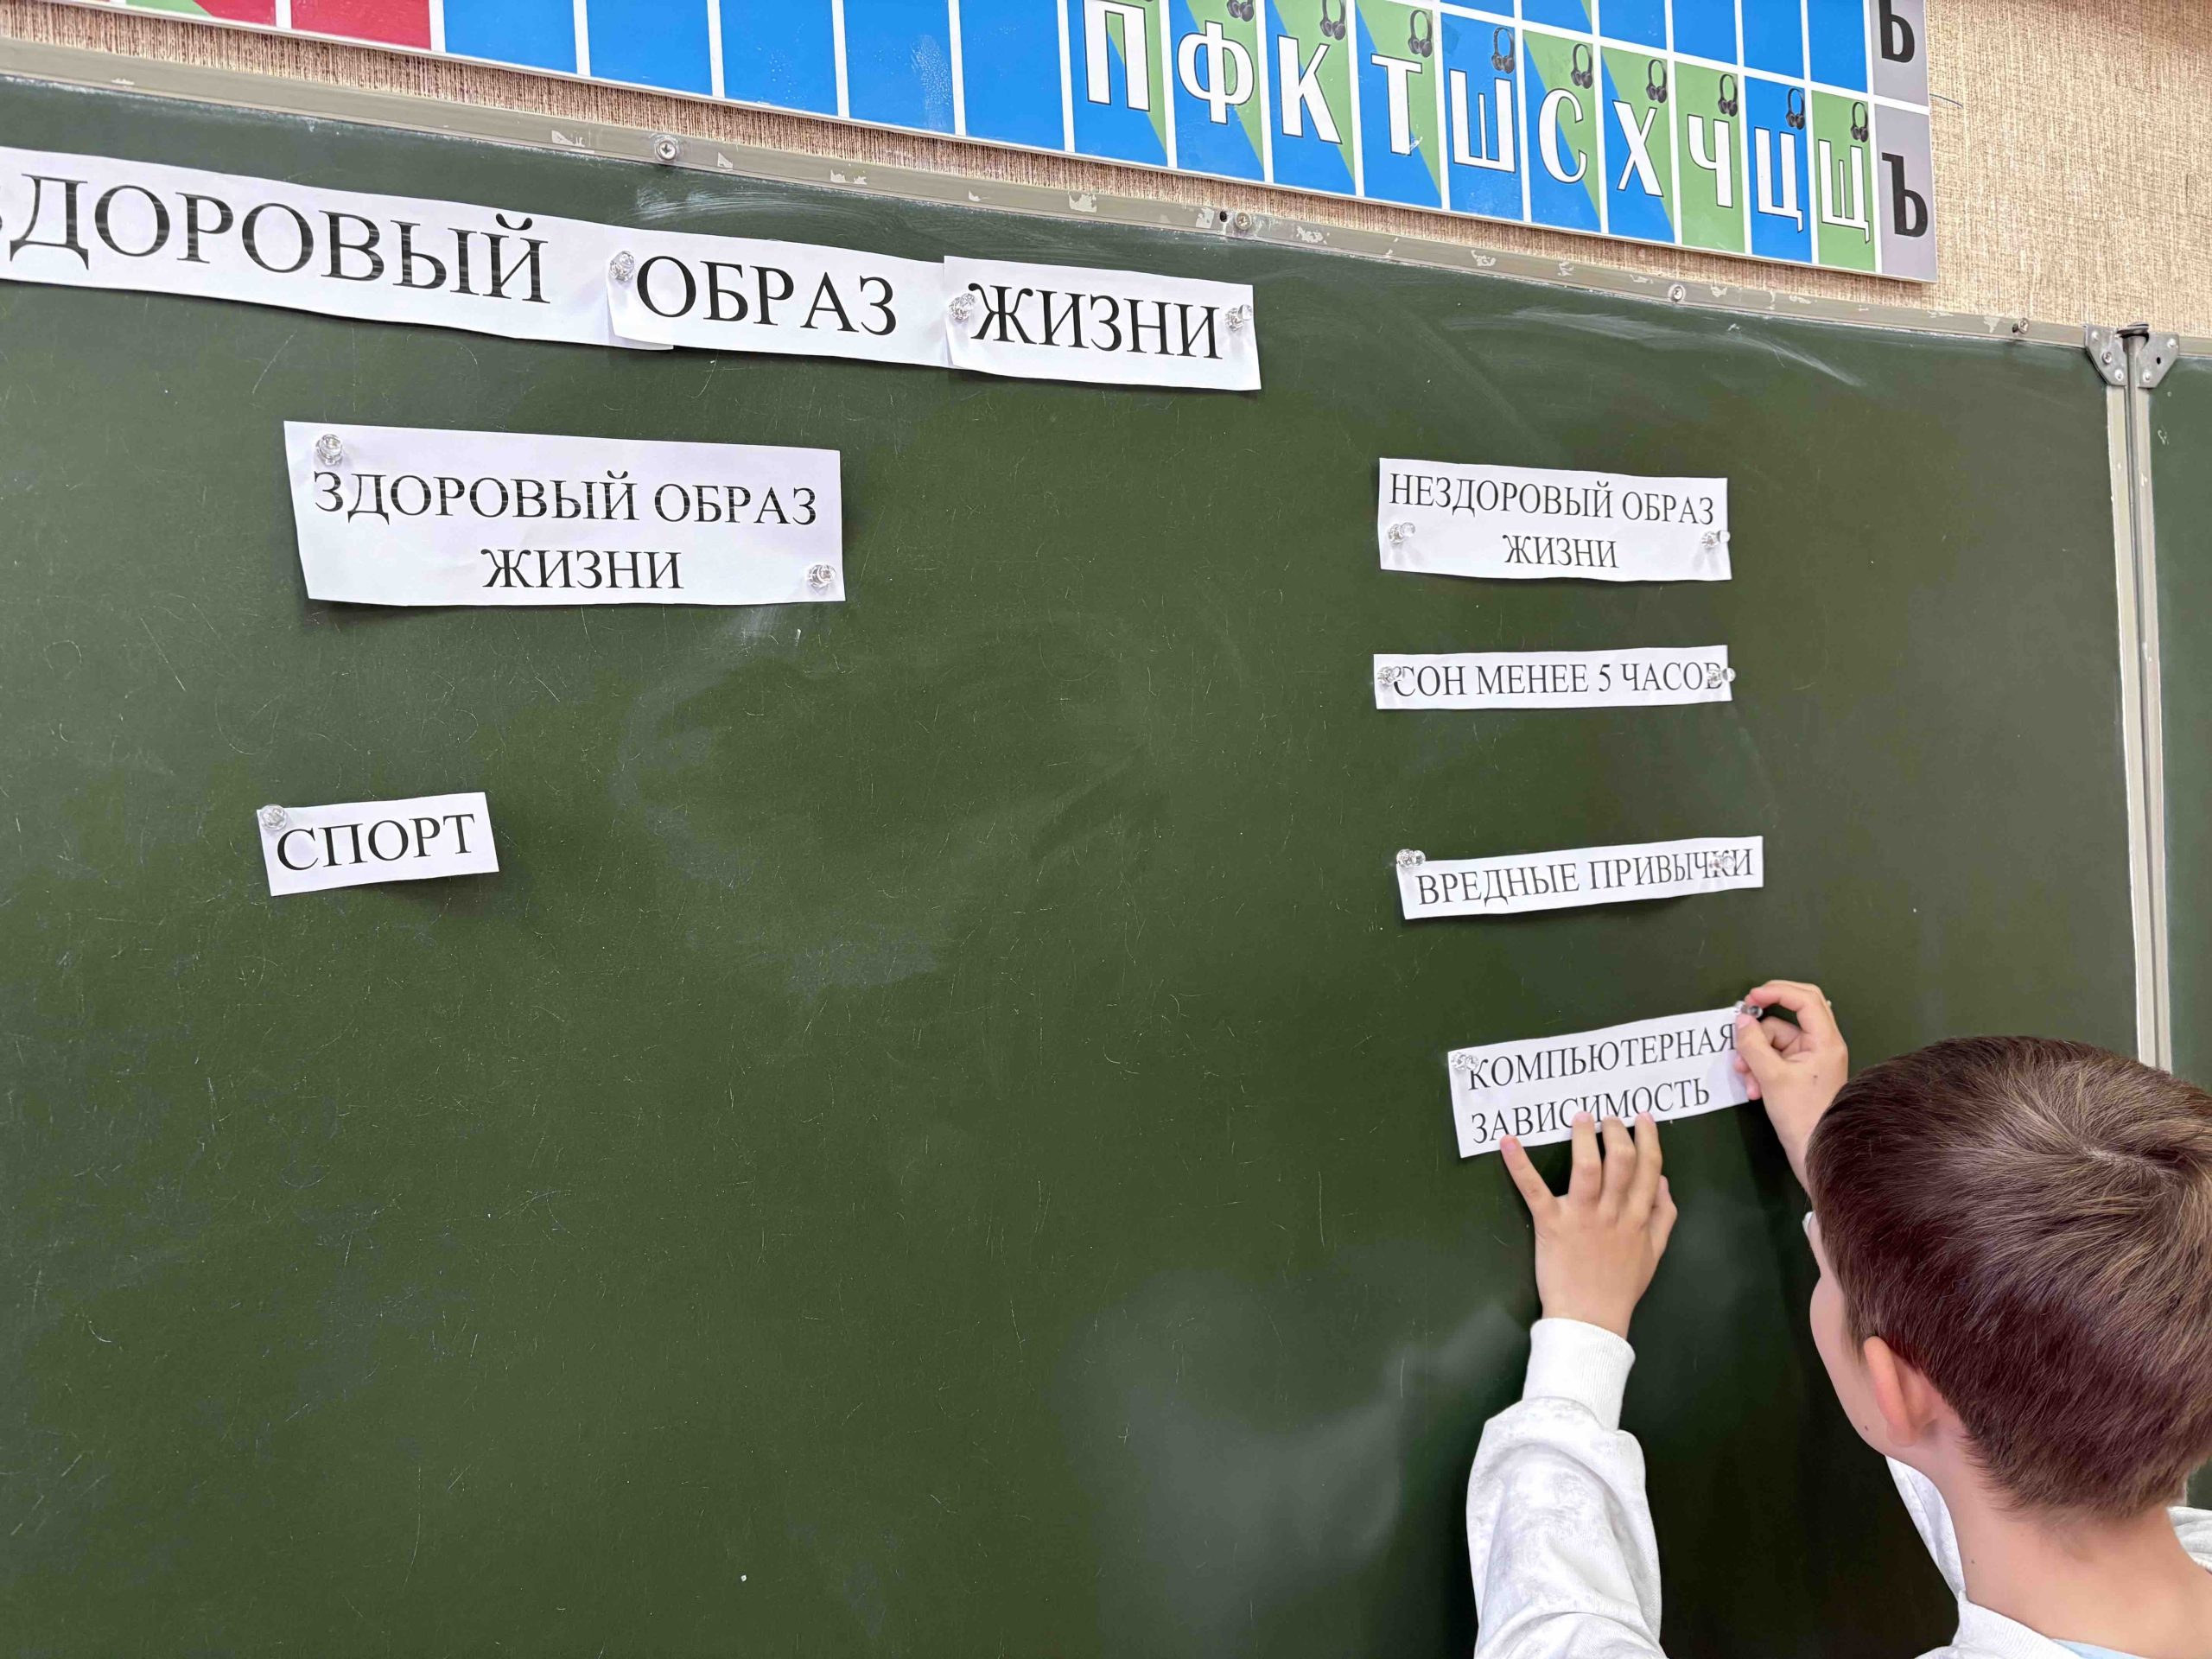 П Ф К Т Ш С Х Ч Ц Щ Ь
Ъ
ЗДОРОВЫЙ ОБРАЗ ЖИЗНИ
ЗДОРОВЫЙ ОБРАЗ
ЖИЗНИ
СПОРТ
НЕЗДОРОВЫЙ ОБРАЗ
ЖИЗНИ
СОН МЕНЕЕ 5 ЧАСОВ
ВРЕДНЫЕ ПРИВЫЧКИ
КОМПЬЮТЕРНАЯ
ЗАВИСИМОСТЬ